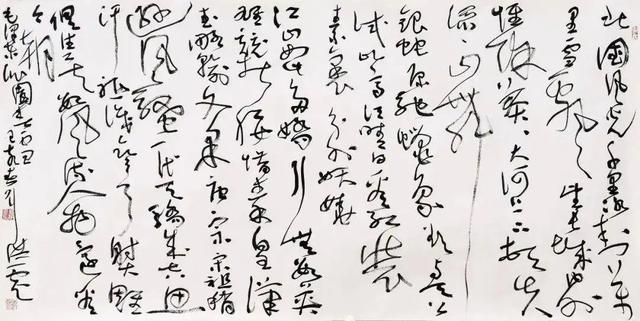 北国风光千里冰封万
里雪飘望长城内外
惟余莽莽大河上下顿失
滔滔山舞
银蛇原驰蜡象欲与天公
试比高须晴日看红装
素裹分外妖娆
江山如此多娇引无数英
雄竞折腰惜秦皇汉
武略输文采唐宗宋祖稍
逊风骚一代天骄成吉思
汗只识弯弓射雕
俱往矣数风流人物还看
今朝
毛泽东沁园春